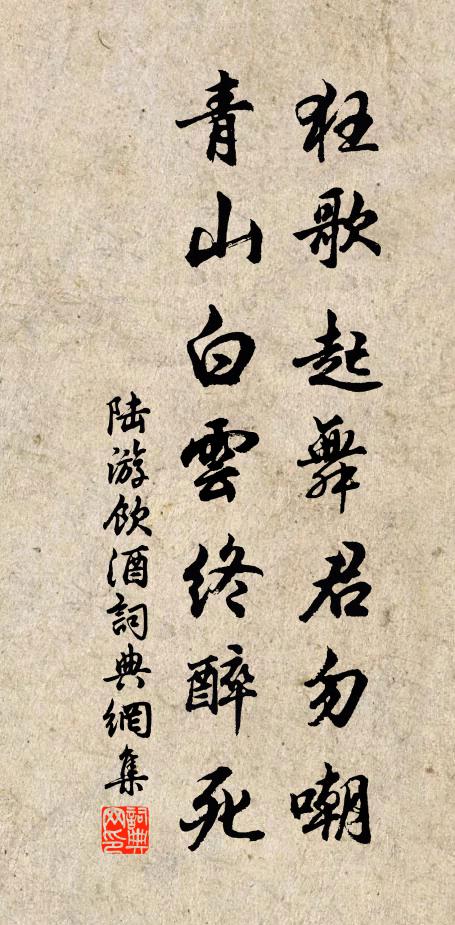 狂歌起舞君勿嘲
青山白雲終醉死
陆游飲酒詞典網集
詞典網印